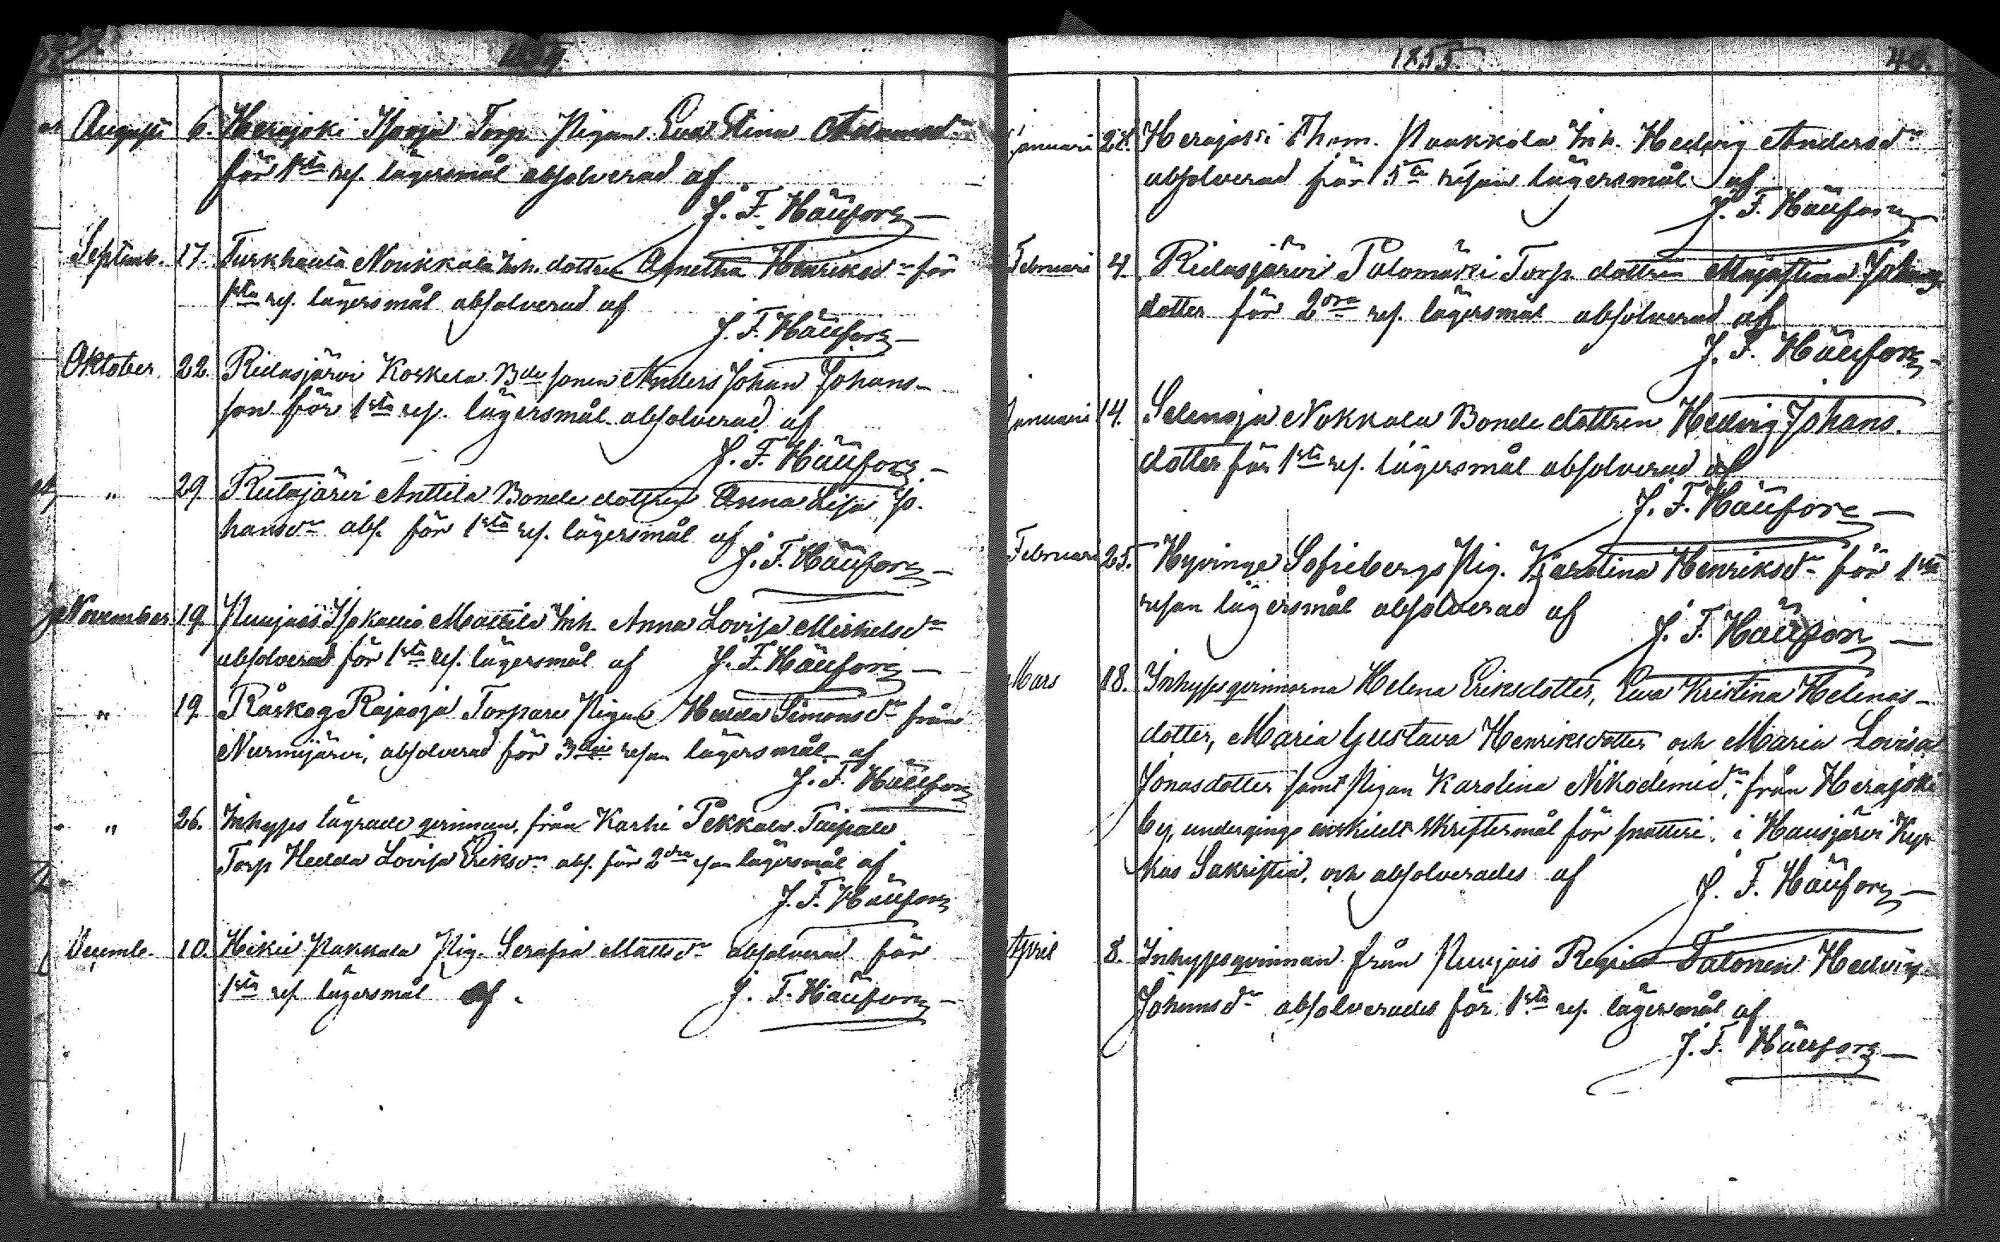 1854.
Augusti 6. Herajoki Isooja Torp. Pigan Eva Stina Adamsdr
för 1sta res. lägersmål absolverad af
J. F. Häufors
Septemb. 17. Turkhauta Noukkala Inh. dottren Agnetha Henriksdr för
1sta res. lägersmål absolverad af
J. F. Häufors
Oktober 22. Ridasjärvi Koskela Bde sonen Anders Johan Johans-
son för 1sta res. lägersmål absolverad af
J. F. Häufors
" 29. Ridasjärvi Anttila Bonde dottren Anna Lisa Jo-
hansdr abs. för 1sta res. lägersmål af
J. F. Häufors
November 19. Puujais Isokallio Mattila Inh. Anna Lovisa Mickelsdr
absolverad för 1sta res. lägersmål af J. F. Häufors
" 19. Råskog Rajaoja Torpare Pigan Hedda Simonsdr från
Nurmijärvi, absolverad för 3dje resan lägersmål af
J. F. Häufors
" 26. Inhyses lägrade qvinnan, från Karhi Pekkala Taipale
Torp Hedda Lovisa Eriksdr abs. för 2dra resan lägersmål af
J. F. Häufors
Decemb. 10. Hikiä Pakkala Pig. Serafia Mattsdr absolverad för
1sta res. lägersmål af.
J. F. Häufors
1855. 40.
Januari 28. Herajoki Thom. Paakkola Inh. Hedvig Andersdr
absolverad för 5te resan lägersmål af
J. F. Häufors
Februari 4. Ridasjärvi Palomäki Torp. dottren Maja Stina Johans
dotter för 2dra res. lägersmål absolverad af
J. F. Häufors
Januari 14. Selänoja Nokkala Bonde dottren Hedvig Johans.
dotter för 1sta res. lägersmål absolverad af
J. F. Häufors
Februari 25. Hyvinge Sofiebergs Pig. Karolina Henriksdr för 1sta
resan lägersmål absolverad af J. F. Häufors
Mars 18. Inhysesqvinnorna Helena Eriksdotter, Eva Kristina Helenas-
dotter, Maria Gustava Henriksdotter och Maria Lovisa
Jonasdotter samt Pigan Karolina Nikodemidr, från Herajoki
by, undergingo enskildt skriftermål för snatteri, i Hausjärvi Kyr-
kas Sakristia, och absolverades af J. F. Häufors
April 8. Inhysesqvinnan från Puujais Talonen Hedvig
Johansdr absolverades för 1sta res. lägersmål af
J. F. Häufors